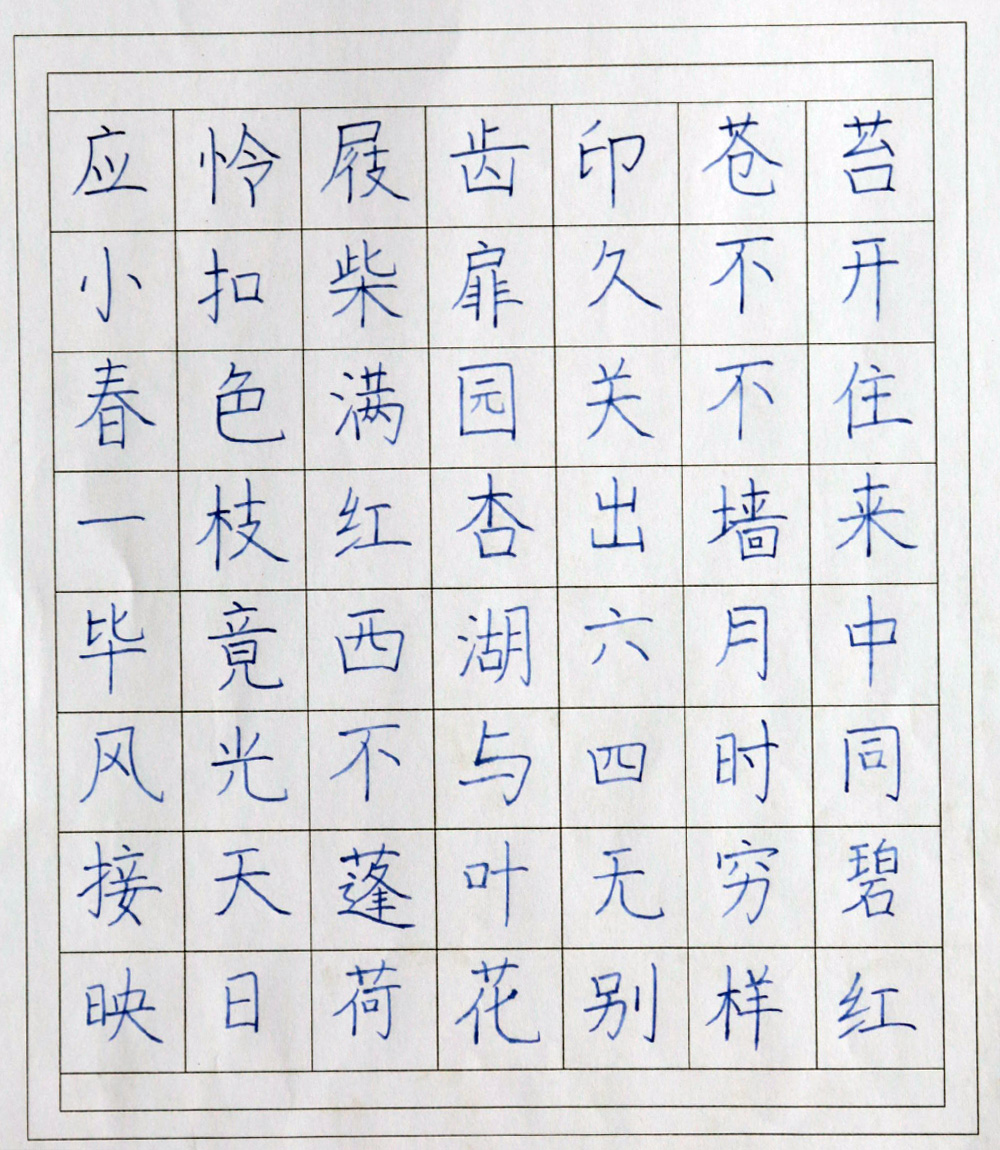 应怜屐齿印苍苔
小扣柴扉久不开
春色满园关不住
一枝红杏出墙来
毕竟西湖六月中
风光不与四时同
接天蓬叶无穷碧
映日荷花别样红